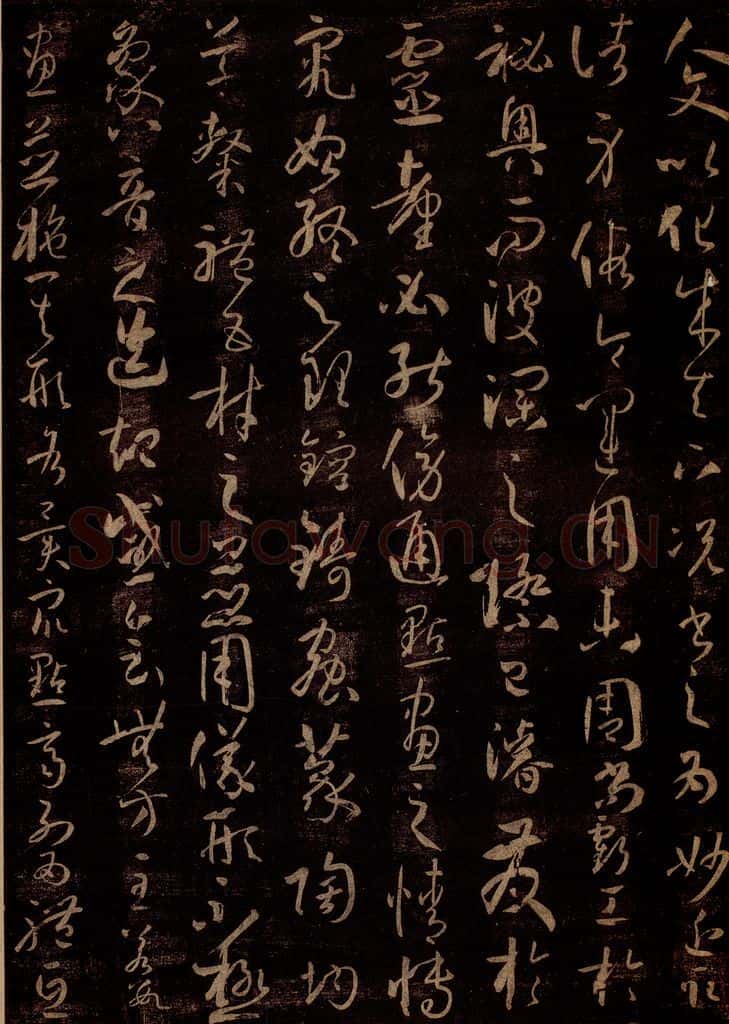 人文以化成天下況書之為妙近取
諸身假令運用未周尚虧工於
祕奧而波瀾之際已濬發於
靈臺必能傍通點畫之情博
究始終之理鎔鑄蟲篆陶均
草隸體五材之並用儀形不極
象八音之迭起感會無方至若數
畫並施其形各異眾點齊列為體互
Shufawang.CN